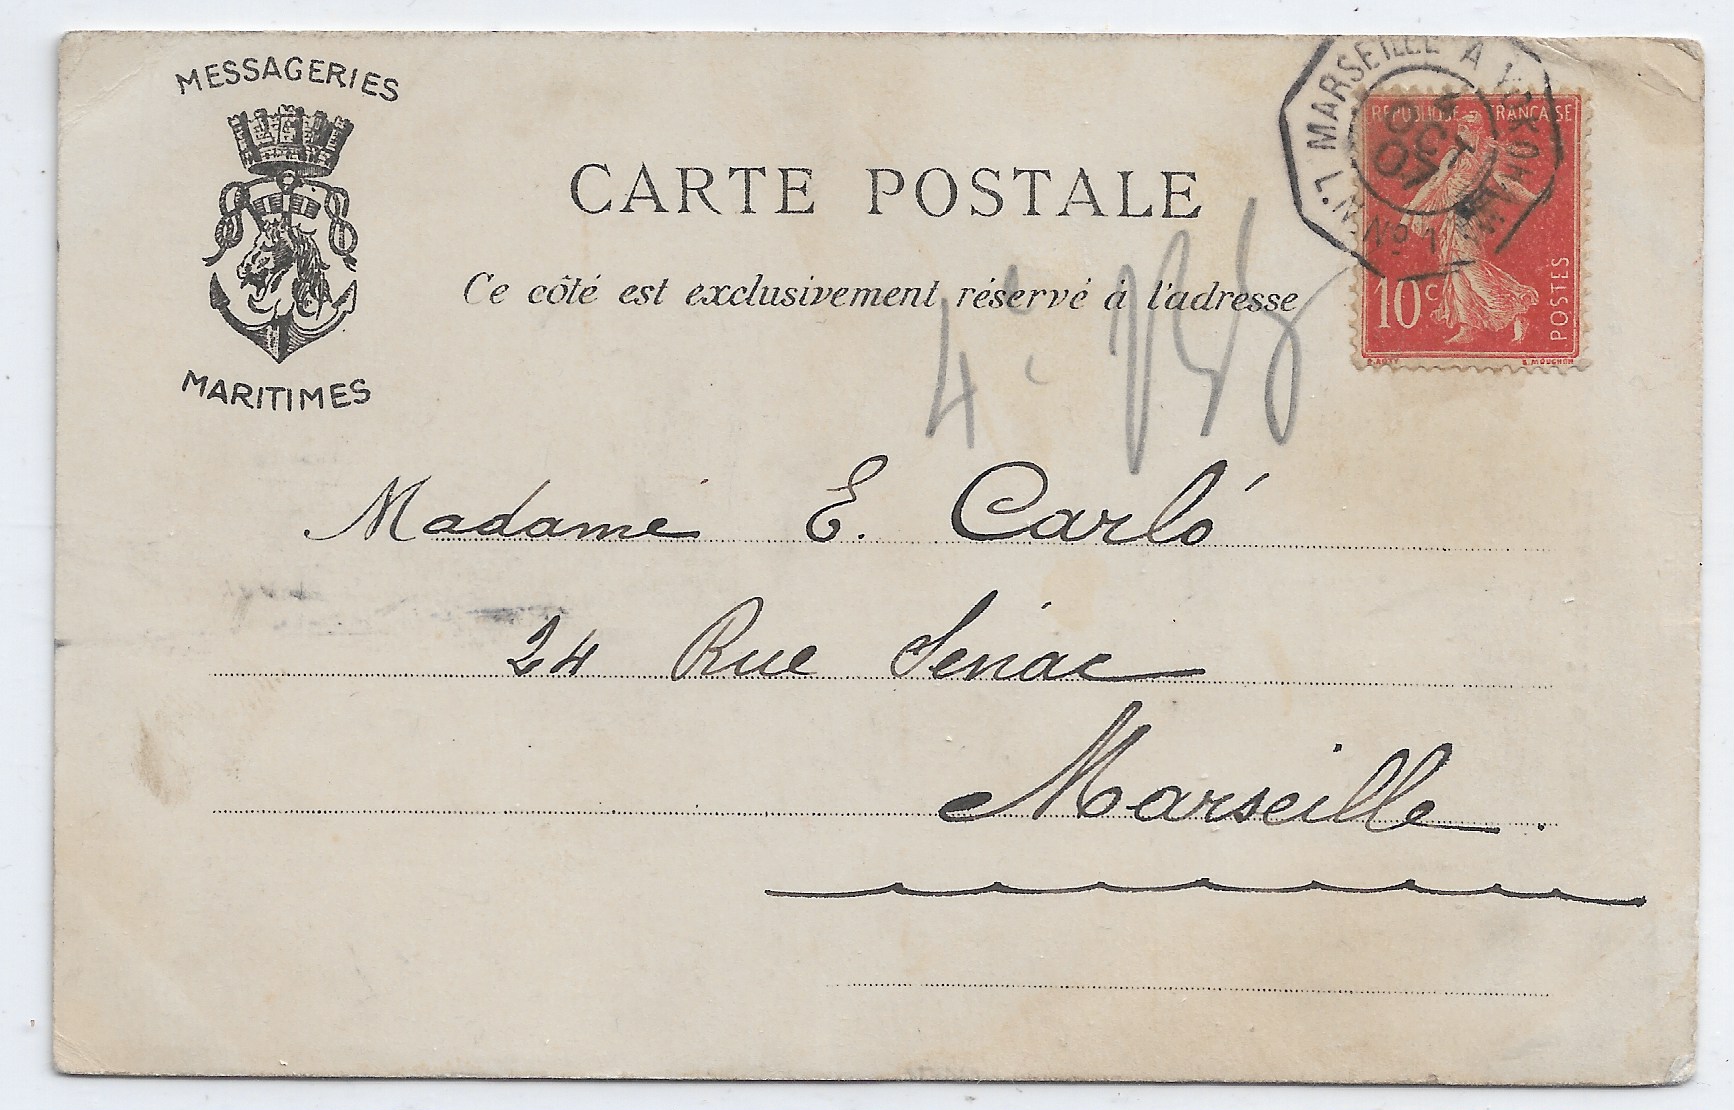 MESSAGERIES
MARITIMES
CARTE POSTALE
Ce côté est exclusivement réservé à l'adresse
MARSEILLE A YOKOHAMA
L.N. No 1
OCT
07
REPUBLIQUE FRANCAISE
10c
POSTES
O. ROTY
E. MOUCHON
4e
Madame E. Carló
24 Rue Senac
Marseille.